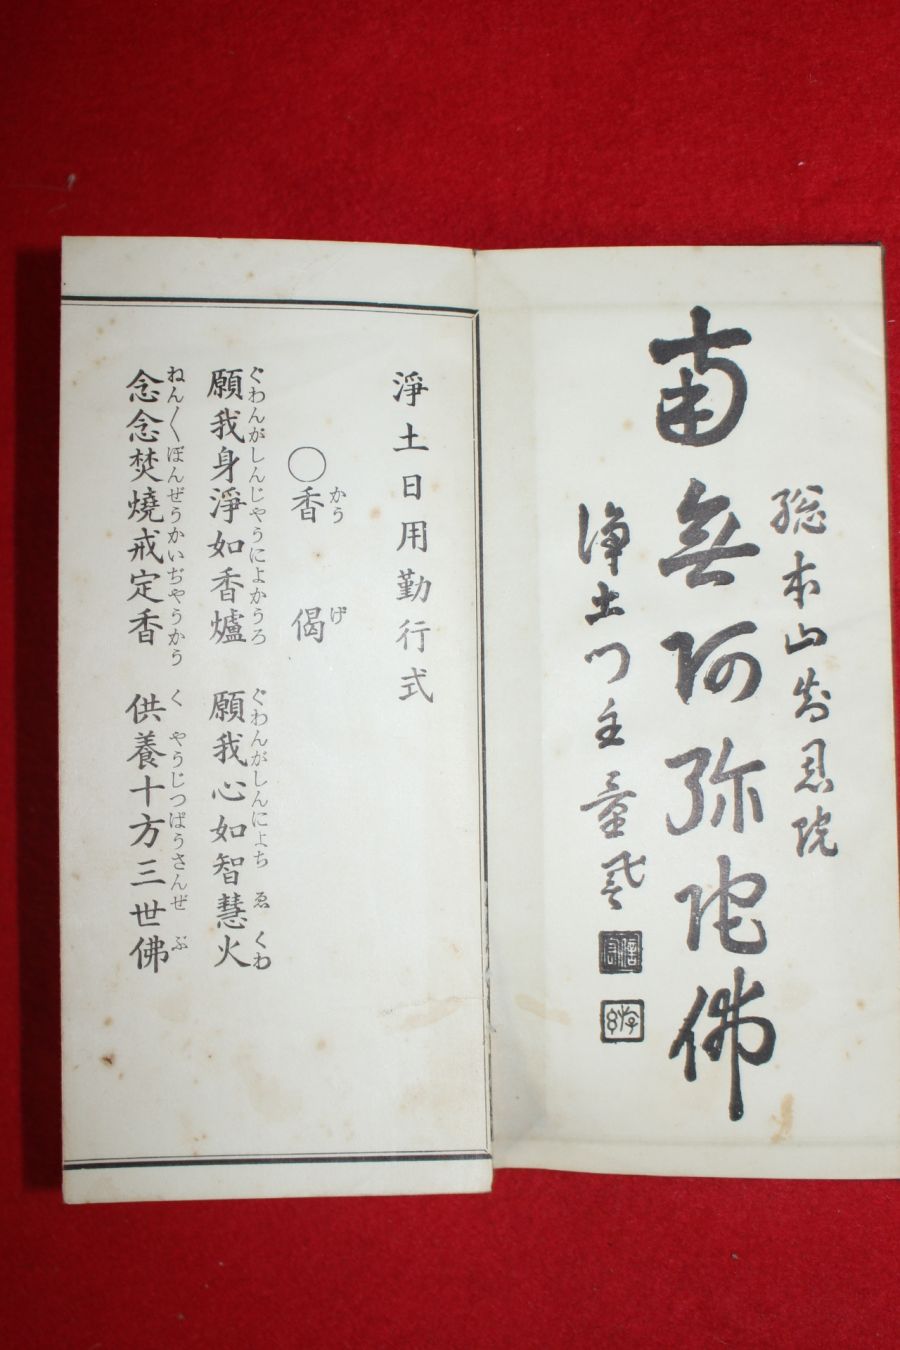 総本山知恩院
南無阿弥陀佛
浄土門主
淨土日用勤行式
○香偈
かうげ
願我身淨如香爐 願我心如智慧火
ぐわんがしんじやうによかうろ ぐわんがしんによちゑくわ
念念焚燒戒定香 供養十方三世佛
ねん〱ぼんぜうかいぢやうかう くやうじつぱうさんぜぶ